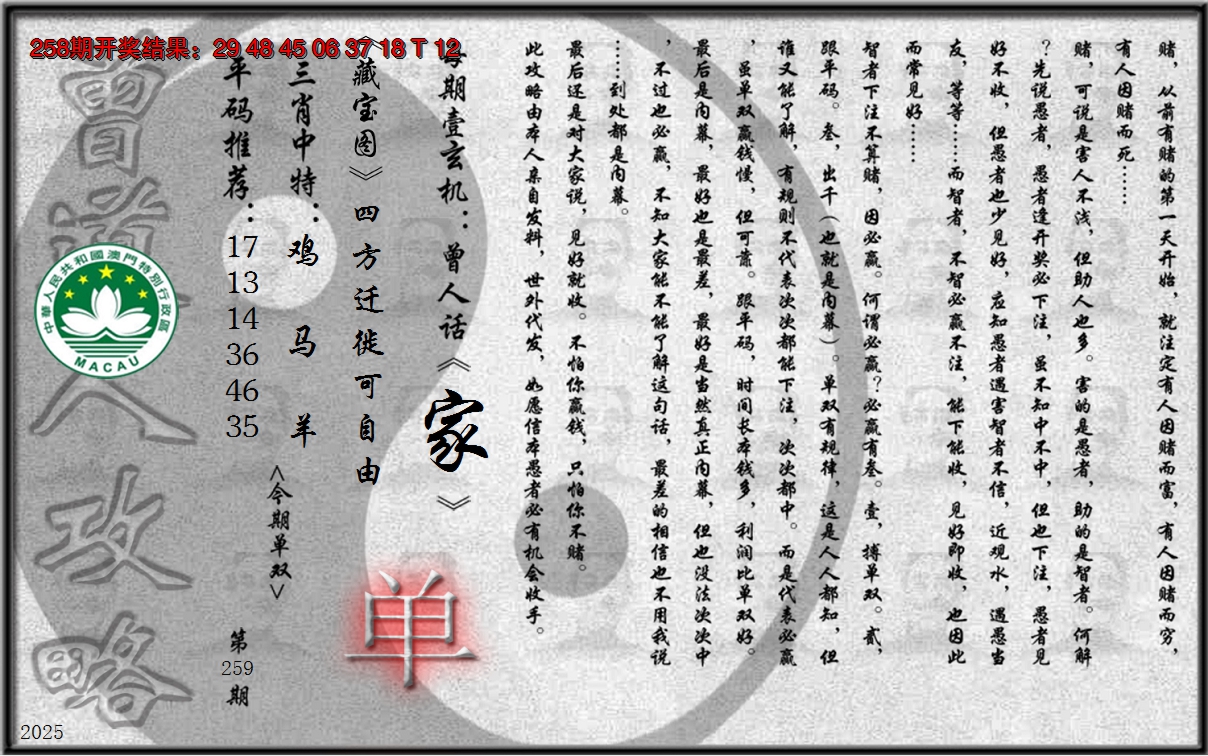 258期开奖结果：29 48 45 06 37 18 T 12
赌，从前有赌的第一天开始，就注定有人因赌而富，有人因赌而穷，
有人因赌而死……
赌，可说是害人不浅，但助人也多。害的是愚者，助的是智者。何解
？先说愚者，愚者逢开奖必下注，虽不知中不中，但也下注，愚者见
好不收，但愚者也少见好，应知愚者遇害智者不信，近观水，遇愚当
友，等等……而智者，不智必赢不注，能下能收，见好即收，也因此
而常见好……
智者下注不算赌，因必赢。何谓必赢？必赢有叁。壹，搏单双。贰，
跟平码。叁，出千（也就是内幕）。单双有规律，这是人人都知，但
谁又能了解，有规则不代表次次都能下注，次次都中。而是代表必赢
，虽单双赢钱慢，但可靠。跟平码，时间长本钱多，利润比单双好。
最后是内幕，最好也是最差，最好是当然真正内幕，但也没法次次中
，不过也必赢，不知大家能不能了解这句话，最差的相信也不用我说
……到处都是内幕。
最后还是对大家说，见好就收。不怕你赢钱，只怕你不赌。
此攻略由本人亲自发料，世外代发，如愿信本愚者必有机会收手。
每期壹玄机：曾人话《家》
《藏宝图》四方迁徙可自由
三肖中特：鸡 马 羊
平码推荐：17 13 14 36 46 35
<今期单双>
单
第259期
曾道人攻略
中華人民共和國澳門特別行政區
MACAU
2025